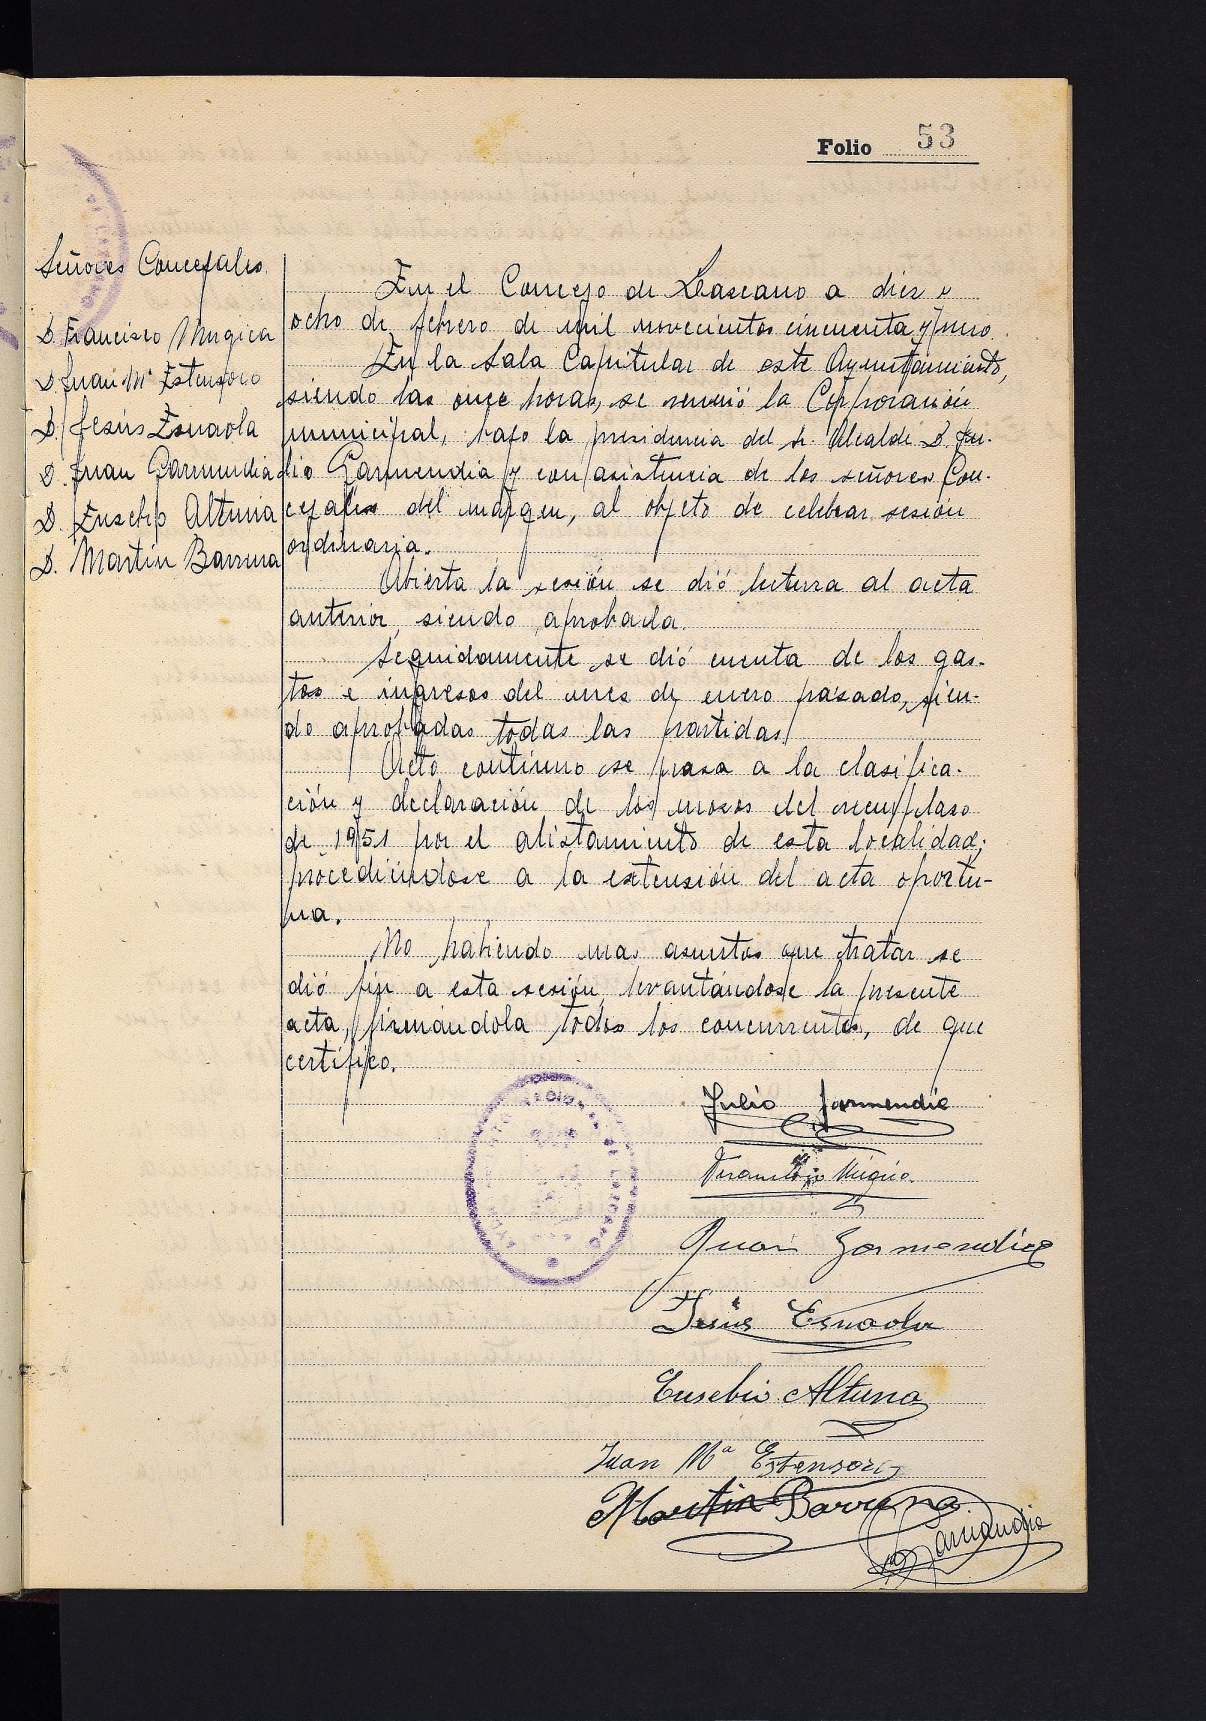 Folio 53
Señores Concejales.
D. Francisco Mugica
D. Juan Mª Estensoro
D. Jesús Esnaola
D. Juan Garmendia
D. Eusebio Altuna
D. Martín Barrena
En el Concejo de Lazcano a diez y
ocho de febrero de mil novecientos cincuenta y uno.
En la Sala Capitular de este Ayuntamiento,
siendo las once horas, se reunió la Corporación
municipal, bajo la presidencia del Sr. Alcalde D. Ju-
lio Garmendia y con asistencia de los señores Con-
cejales del margen, al objeto de celebrar sesión
ordinaria.
Abierta la sesión se dió lectura al acta
anterior, siendo aprobada.
Seguidamente se dió cuenta de los gas-
tos e ingresos del mes de enero pasado, sien-
do aprobadas todas las partidas.
Acto continuo se pasa a la clasifica-
ción y declaración de los mozos del reemplazo
de 1951 por el alistamiento de esta localidad;
procediéndose a la extensión del acta oportu-
na.
No habiendo mas asuntos que tratar se
dió fin a esta sesión, levantándose la presente
acta, firmándola todos los concurrentes, de que
certifico.
Julio Garmendia
Francisco Mugica
Juan Garmendia
Jesús Esnaola
Eusebio Altuna
Juan Mª Estensoro
Martin Barrena